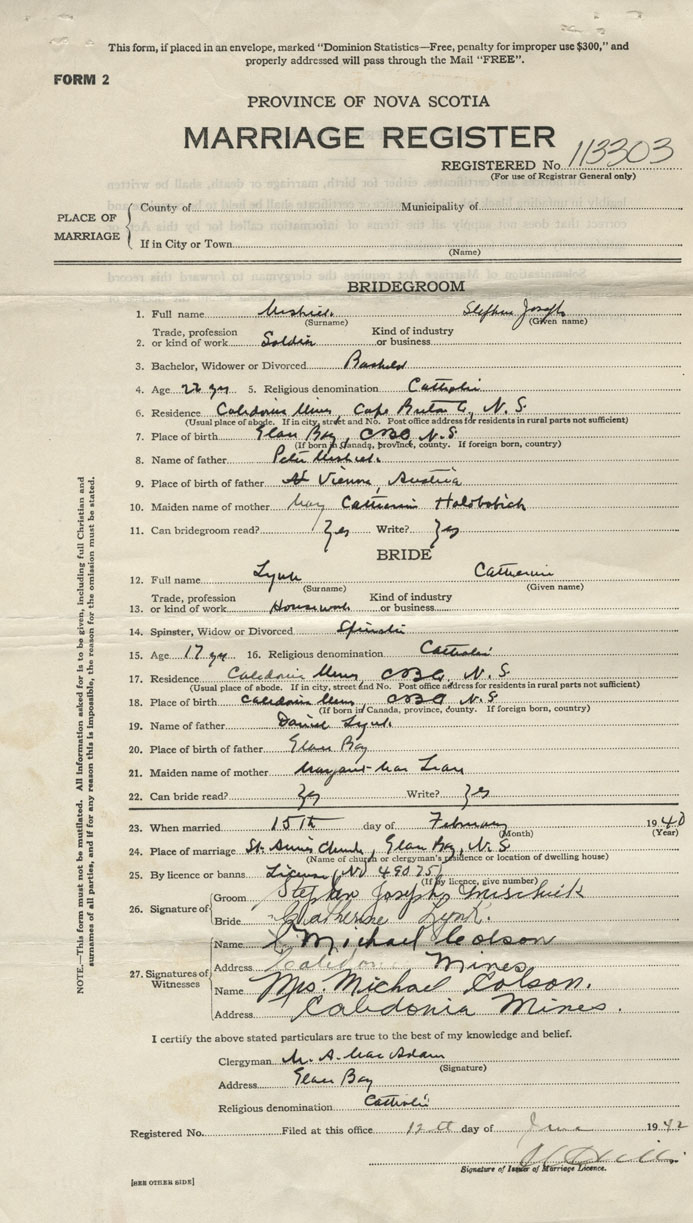 This form, if placed in an envelope, marked "Dominion Statistics—Free, penalty for improper use $300," and
properly addressed will pass through the Mail "FREE".
FORM 2
PROVINCE OF NOVA SCOTIA
MARRIAGE REGISTER
REGISTERED No. 113303
(For use of Registrar General only)
PLACE OF MARRIAGE
County of Municipality of
If in City or Town
(Name)
BRIDEGROOM
1. Full name Stephen Joseph
(Surname) (Given name)
2. Trade, profession or kind of work Soldier Kind of industry or business
3. Bachelor, Widower or Divorced Bachelor
4. Age 22 yrs 5. Religious denomination Catholic
6. Residence Caledonia Mines, Cape Breton Co, N. S.
(Usual place of abode. If in city, street and No. Post office address for residents in rural parts not sufficient)
7. Place of birth Glace Bay, CBC N. S.
(If born in Canada, province, county. If foreign born, country)
8. Name of father Peter
9. Place of birth of father Vienna, Austria
10. Maiden name of mother Mary Catherine
11. Can bridegroom read? Yes Write? Yes
BRIDE
12. Full name Lynk Catherine
(Surname) (Given name)
13. Trade, profession or kind of work Housework Kind of industry or business
14. Spinster, Widow or Divorced Spinster
15. Age 17 yrs 16. Religious denomination Catholic
17. Residence Caledonia Mines, CBC, N. S.
(Usual place of abode. If in city, street and No. Post office address for residents in rural parts not sufficient)
18. Place of birth Caledonia Mines, CBC N. S.
(If born in Canada, province, county. If foreign born, country)
19. Name of father Daniel Lynk
20. Place of birth of father Glace Bay
21. Maiden name of mother Margaret Mac Lean
22. Can bride read? Yes Write? Yes
23. When married 15th day of February 1940
(Month) (Year)
24. Place of marriage St. Ann's Church, Glace Bay, N. S.
(Name of church or clergyman's residence or location of dwelling house)
25. By licence or banns License (No 49025)
(If by licence, give number)
26. Signature of
Groom Stephen Joseph Mischiek
Bride Catherine Lynk.
27. Signatures of Witnesses
Name Michael Colson
Address Caledonia Mines
Name Mrs. Michael Colson.
Address Caledonia Mines.
I certify the above stated particulars are true to the best of my knowledge and belief.
Clergyman M. A. MacAdam
(Signature)
Address Glace Bay
Religious denomination Catholic
Registered No. Filed at this office 12th day of June 1942
Signature of Issuer of Marriage Licence.
[SEE OTHER SIDE]
NOTE.—This form must not be mutilated. All information asked for is to be given, including full Christian and
surnames of all parties, and if for any reason this is impossible, the reason for the omission must be stated.